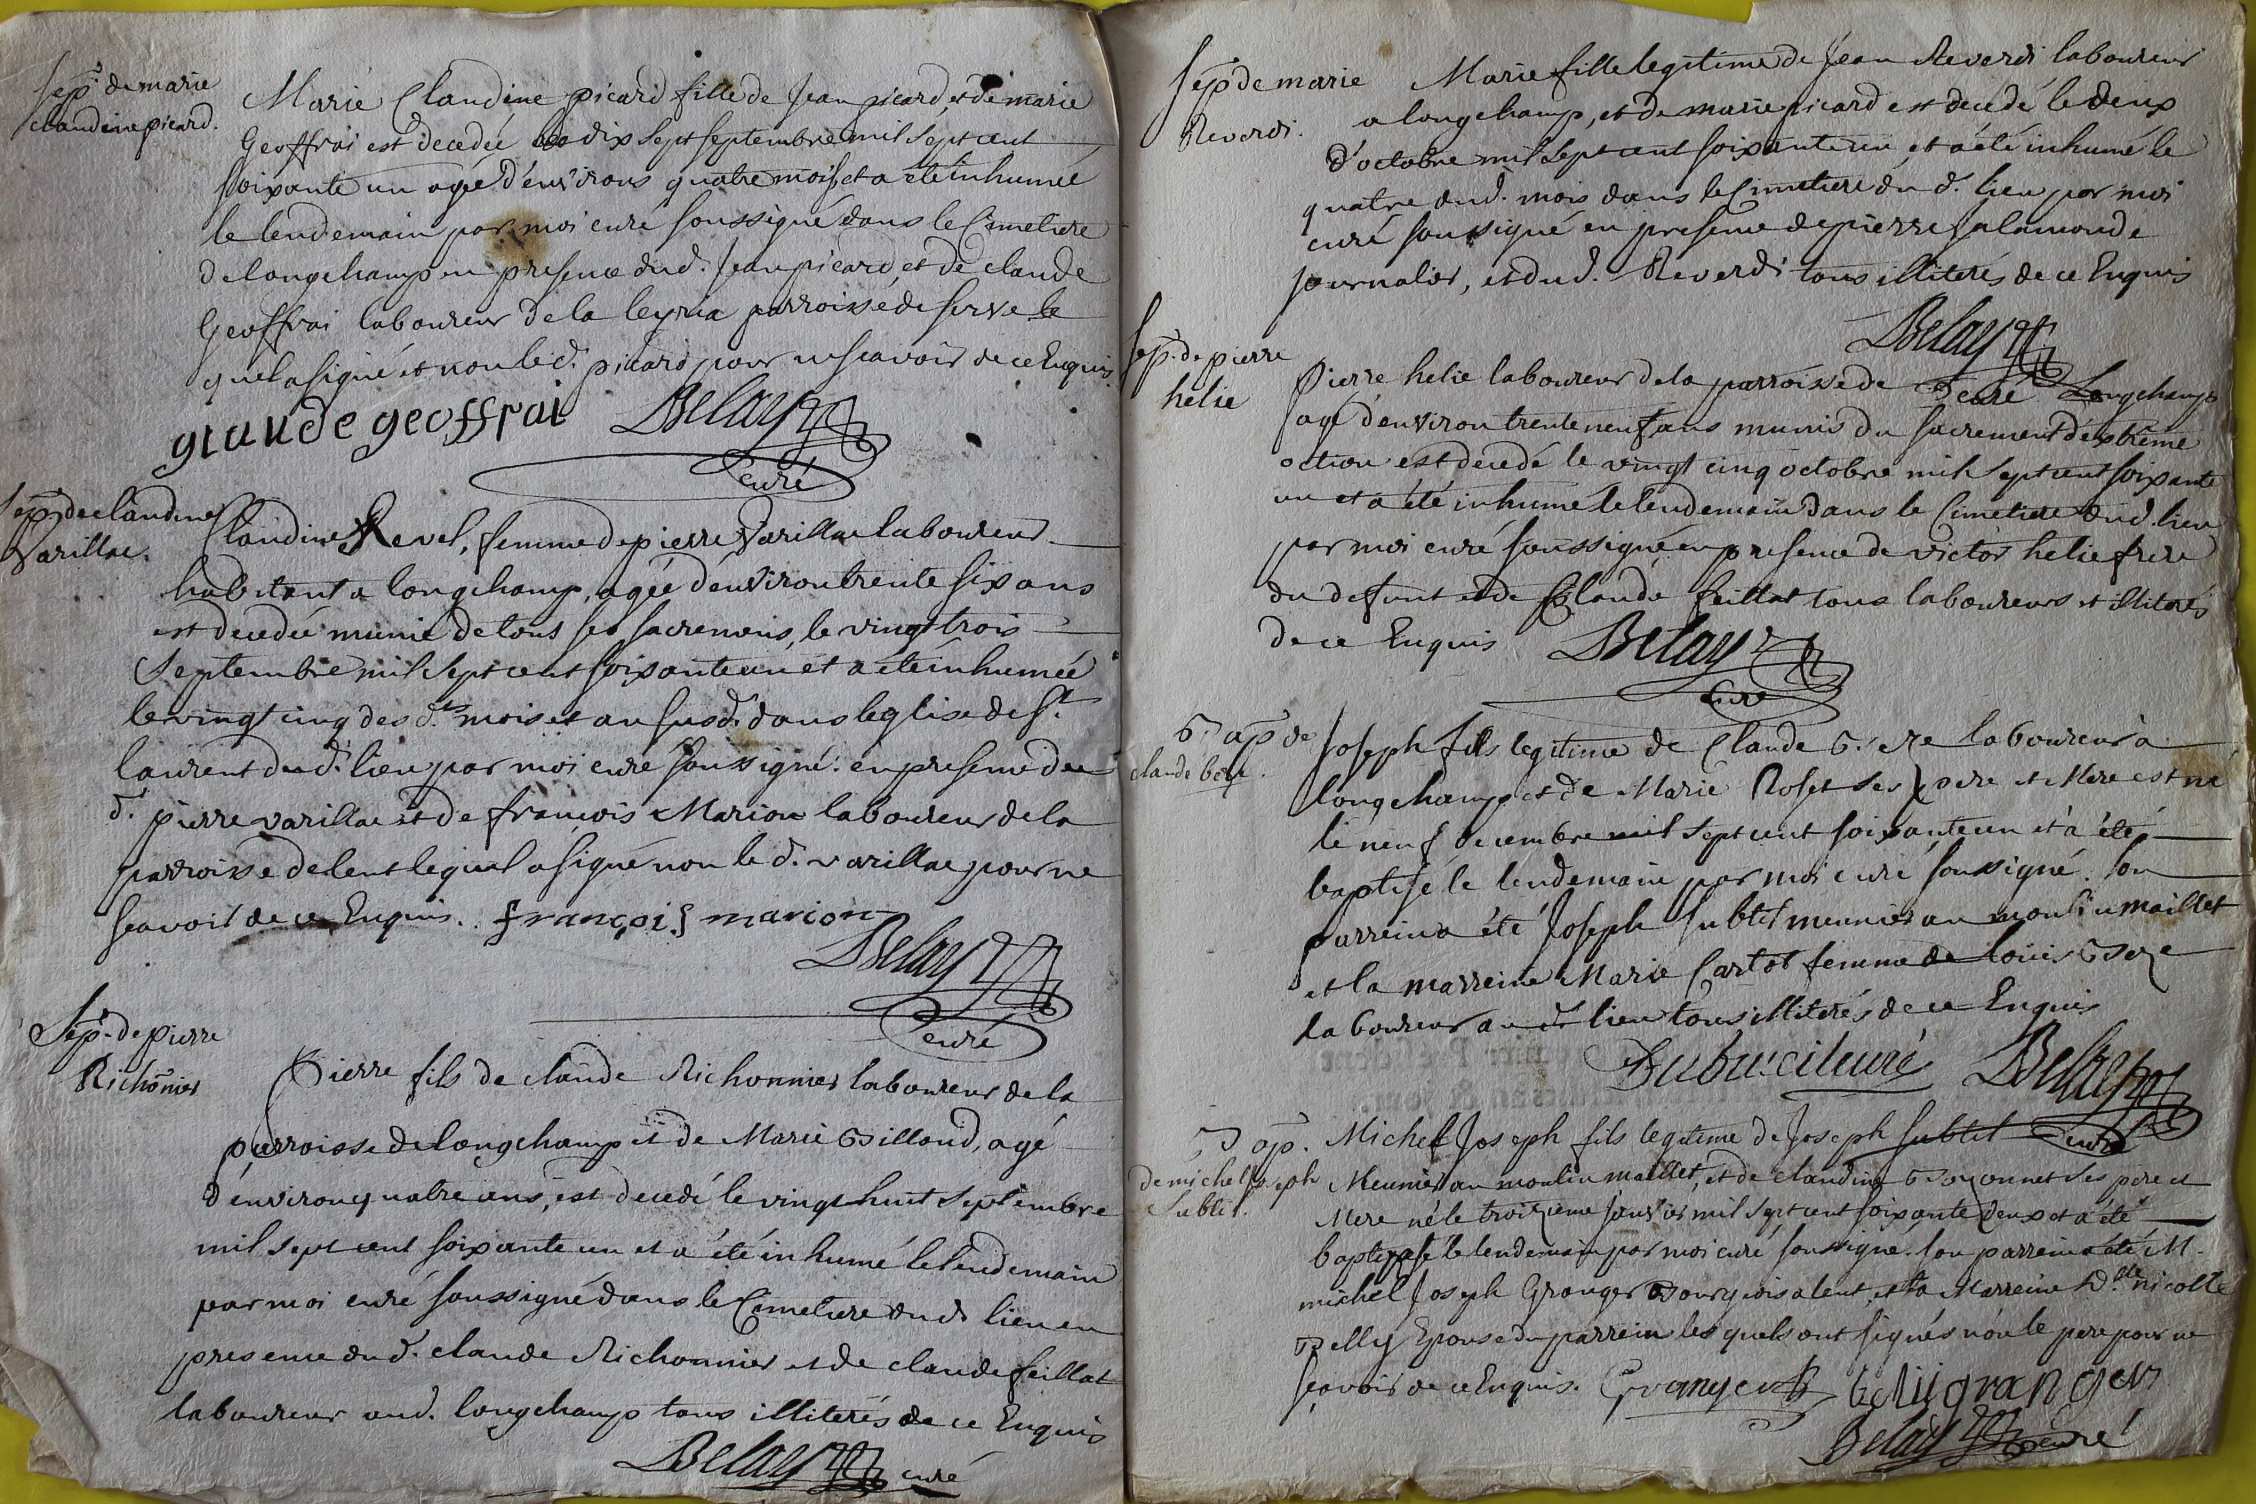 Sep. de marie
claudine picard.
Marie Claudine picard fille de Jean picard, et de marie
Geoffrai est decedée le dix sept septembre mil sept cent
soixante un agée d'environs quatre mois, et a été inhumée
le lendemain par moi curé soussigné dans le Cimetiere
de longchamp en presence dud. Jean picard et de claude
Geoffrai laboureur de la leyria parroisse de serve le
quel a signé et non led. picard pour ne scavoir de ce Enquis
glaude geoffrai Belay
curé
Sep. de claudine
Varillac.
Claudine Revel, femme de pierre Varillac laboureur
habitant a longchamp, agée d'environ trente six ans
est decedée munie de tous ses sacremens, le vingt trois
Septembre mil sept cent soixante un et a été inhumée
le vingt cinq desd.ts mois et an susd. dans leglise de St.
laurent dud. lieu par moi curé soussigné en presence du
d. pierre varillac et de françois Marion laboureur de la
parroisse de lent lequel a signé non le d. varillac pour ne
scavoir de ce Enquis. françois marion
Belay
curé
Sep. de pierre
Richoñier
Pierre fils de claude Richonnier laboureur de la
parroisse de longchamp et de Marie Billoud, agé
d'environ quatre ans, est decedé le vingt huit septembre
mil sept cent soixante un et a été inhumé le lendemain
par moi curé soussigné dans le Cimetiere dud. lieu en
presence dud. claude Richonnier et de claude feillat
laboureur aud. longchamp tous illiterés de ce Enquis
Belay curé
Sep. de marie
Reverdi.
Marie fille legitime de Jean Reverdi laboureur
a longchamp, et de marie picard est decedé le deux
d'octobre mil sept cent soixante un, et a été inhumé le
quatre dud. mois dans le Cimetiere du d. lieu par moi
curé soussigné en presence de pierre salamonde
journalier, et dud. Reverdi tous illiterés de ce Enquis
Belay
curé
Sep. de pierre
helie
Pierre helie laboureur de la parroisse de Longchamp
agé d'environ trente neuf ans munis du sacrement d'extrême
oction est decedé le vingt cinq octobre mil sept cent soixante
un et a été inhumé le lendemain dans le Cimetiere dud. lieu
par moi curé soussigné en presence de victor helie frere
du defunt et de Claude feillat tous laboureurs et illiterés
de ce Enquis Belay
curé
Bap. de
claude
Joseph fils legitime de Claude laboureur à
longchamp et de Marie Roset ses pere et Mere est né
le neuf decembre mil sept cent soixante un et a été
baptisé le lendemain par moi curé soussigné. son
parrein a été Joseph sublet meunier au moulin maillet
et la marreine Marie Cartot femme de louis
laboureur au d. lieu tous illiterés de ce Enquis
Belay
curé
Bap.
de michel Joseph
sublet.
Michel Joseph fils legitime de Joseph sublet
Meunier au moulin maillet, et de claudine ses pere et
Mere né le troizieme janvier mil sept cent soixante deux et a été
baptisé le lendemain par moi curé soussigné. son parrein a été M.
michel Joseph Granger Bourgeois a lent, et la Marreine D.lle nicolle
Belly Epouse du parrein lesquels ont signés non le pere pour ne
scavoir de ce Enquis. Granger belli granger
Belay curé